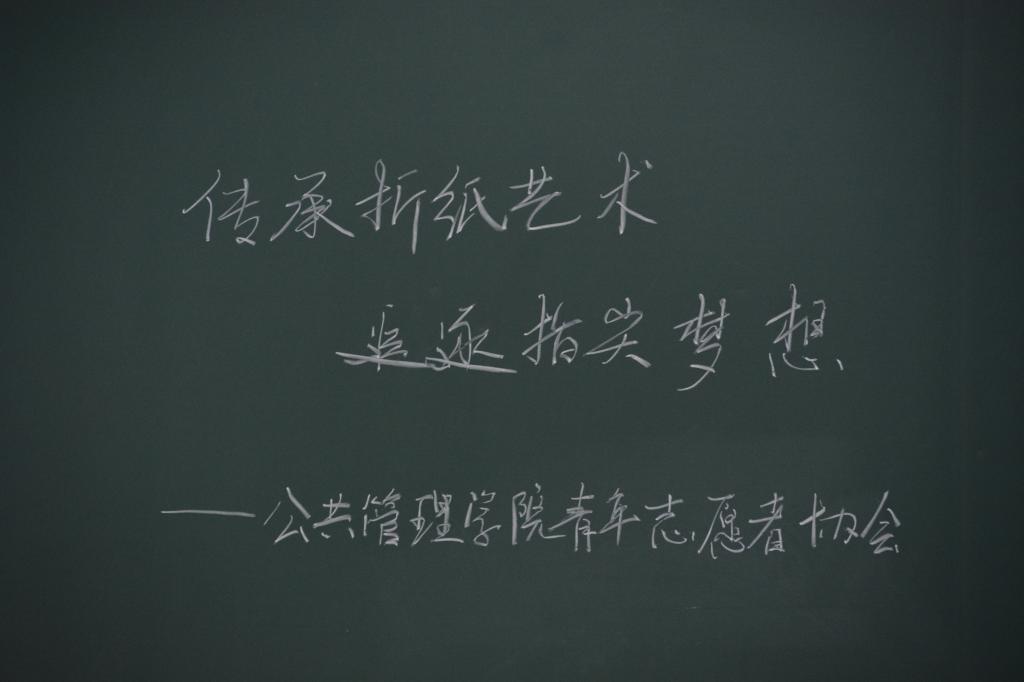 传承折纸艺术
追逐指尖梦想
——公共管理学院青年志愿者协会